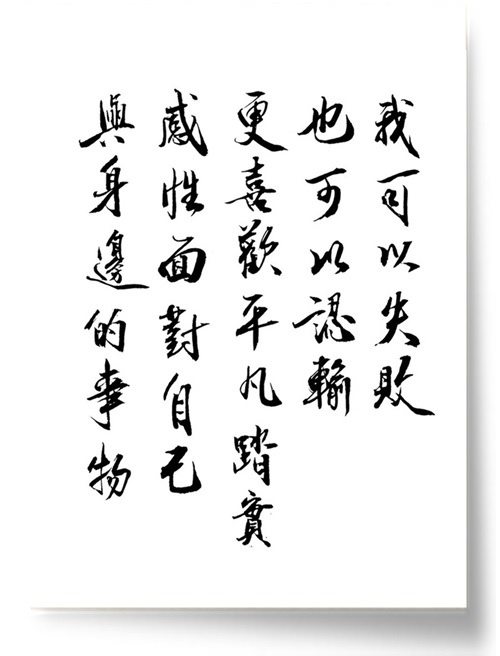 我可以失敗
也可以認輸
更喜歡平凡踏實
感性面對自己
與身邊的事物